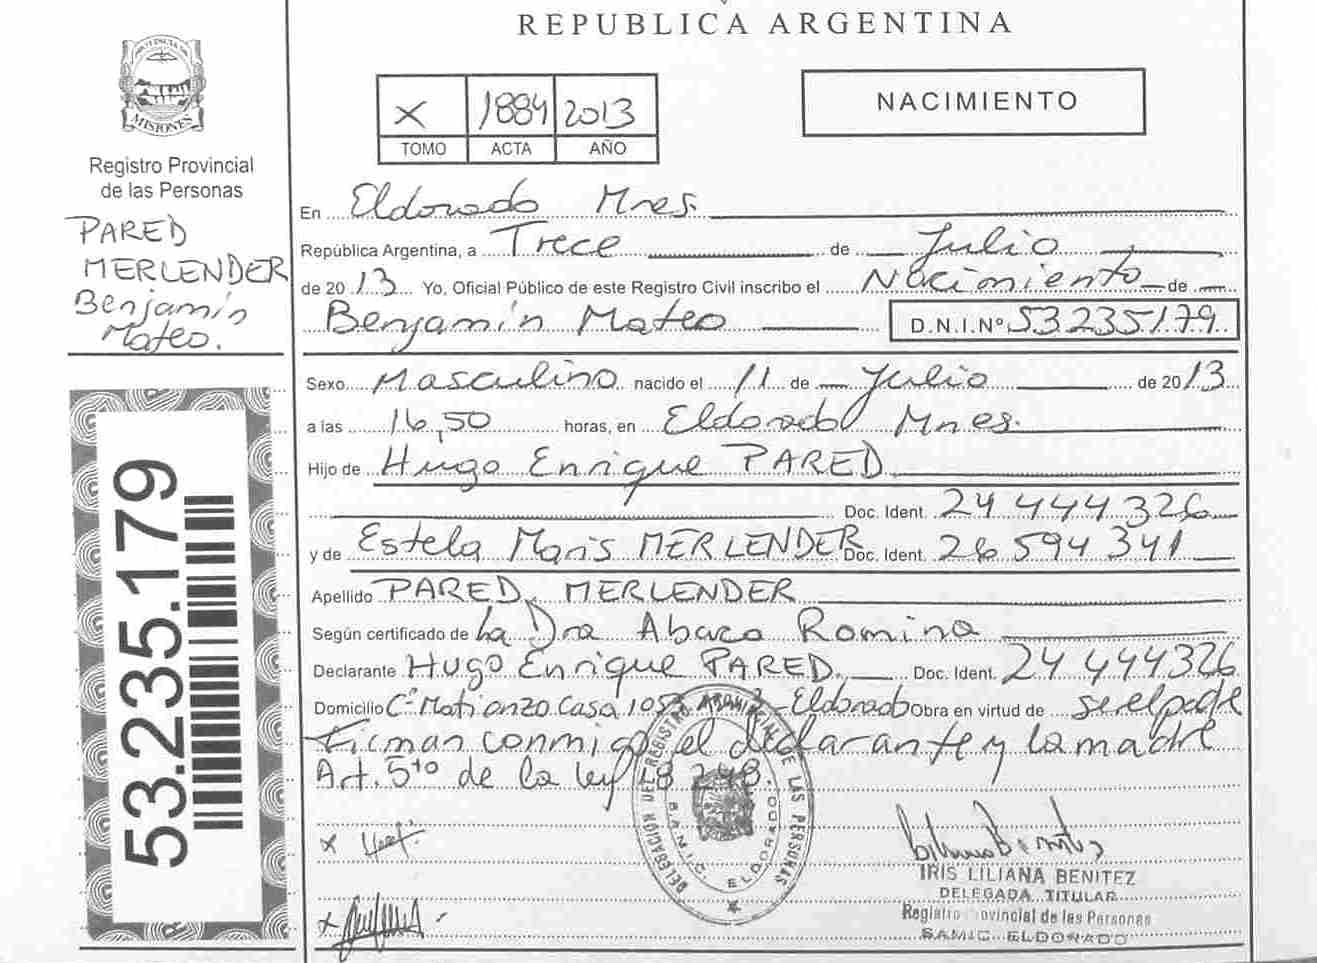 REPUBLICA ARGENTINA
MISIONES
Registro Provincial
de las Personas
PARED
MERLENDER
Benjamín
Mateo.
53.235.179
X 1884 2013
TOMO ACTA AÑO
NACIMIENTO
En Eldorado Mnes.
República Argentina, a Trece de Julio
de 2013 Yo, Oficial Público de este Registro Civil inscribo el Nacimiento de
Benjamín Mateo D.N.I.Nº 53235179
Sexo Masculino nacido el 11 de Julio de 2013
a las 16,50 horas, en Eldorado Mnes.
Hijo de Hugo Enrique PARED
Doc. Ident. 24 444 326
y de Estela Maris MERLENDER Doc. Ident. 26 594 341
Apellido PARED, MERLENDER
Según certificado de La Dra Abaco Romina
Declarante Hugo Enrique PARED. Doc. Ident. 24 444 326
Domicilio Cº Matianzo Casa Eldorado Obra en virtud de ser el padre
Firman conmigo el declarante y la madre
Art. 5to de la ley 18 248.
DELEGACION DEL REGISTRO PROVINCIAL DE LAS PERSONAS
S.A.M.I.C. ELDORADO
X
X
IRIS LILIANA BENITEZ
DELEGADA TITULAR
Registro Provincial de las Personas
SAMIC ELDORADO